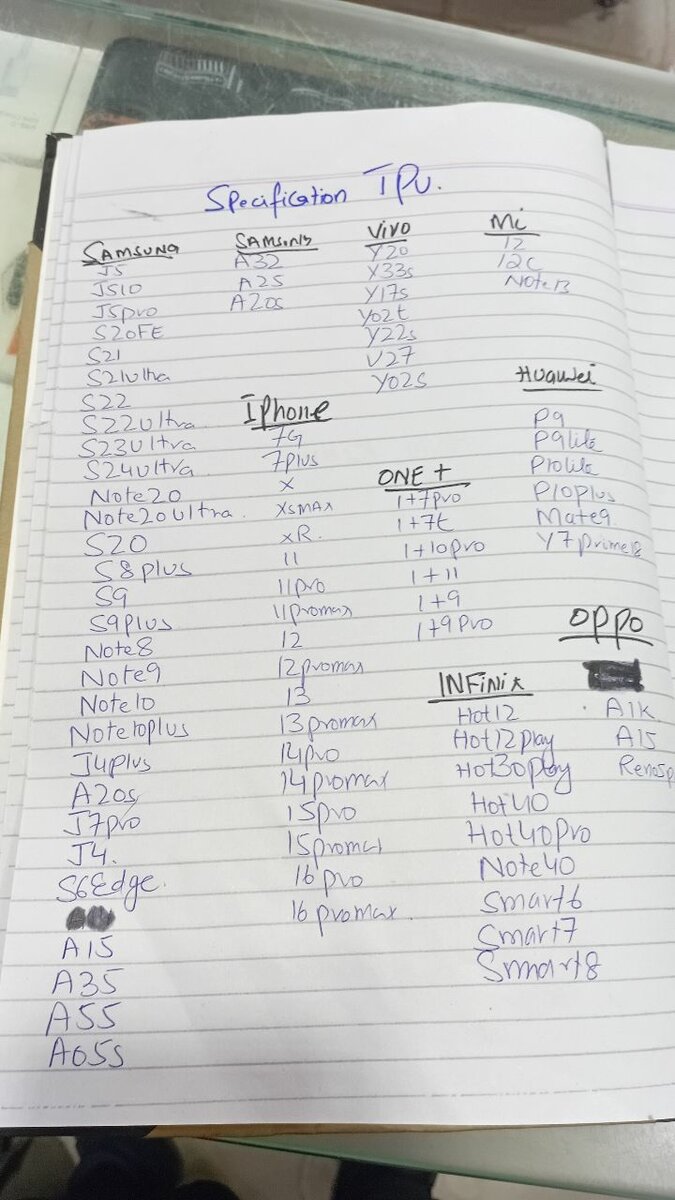 Specification TPU.
SAMSUNG
J5
J510
J5pro
S20FE
S21
S21ultra
S22
S22ultra
S23ultra
S24ultra
Note20
Note20ultra.
S20
S8plus
S9
S9plus
Note8
Note9
Note10
Note10plus
J4plus
A20s
J7pro
J4.
S6Edge.
A15
A35
A55
A05s
SAMSUNG
A32
A25
A20s
Iphone
7G
7plus
X
XSMAX
XR.
11
11pro
11promax
12
12promax
13
13promax
14pro
14promax
15pro
16pro
16promax.
ViVO
Y20
Y33s
Y17s
Y02t
Y22s
V27
Y02s
ONE+
1+7pro
1+7t
1+10pro
1+11
1+9
1+9pro
INFinix
Hot12
Hot12play
Hot30play
Hot40
Hot40pro
Note40
Smart6
Smart7
Smart8
Mi
12
12C
Note13
Huawei
P9
P9lite
P10lite
P10plus
Mate9
Y7prime18
OPPO
A1K
A15